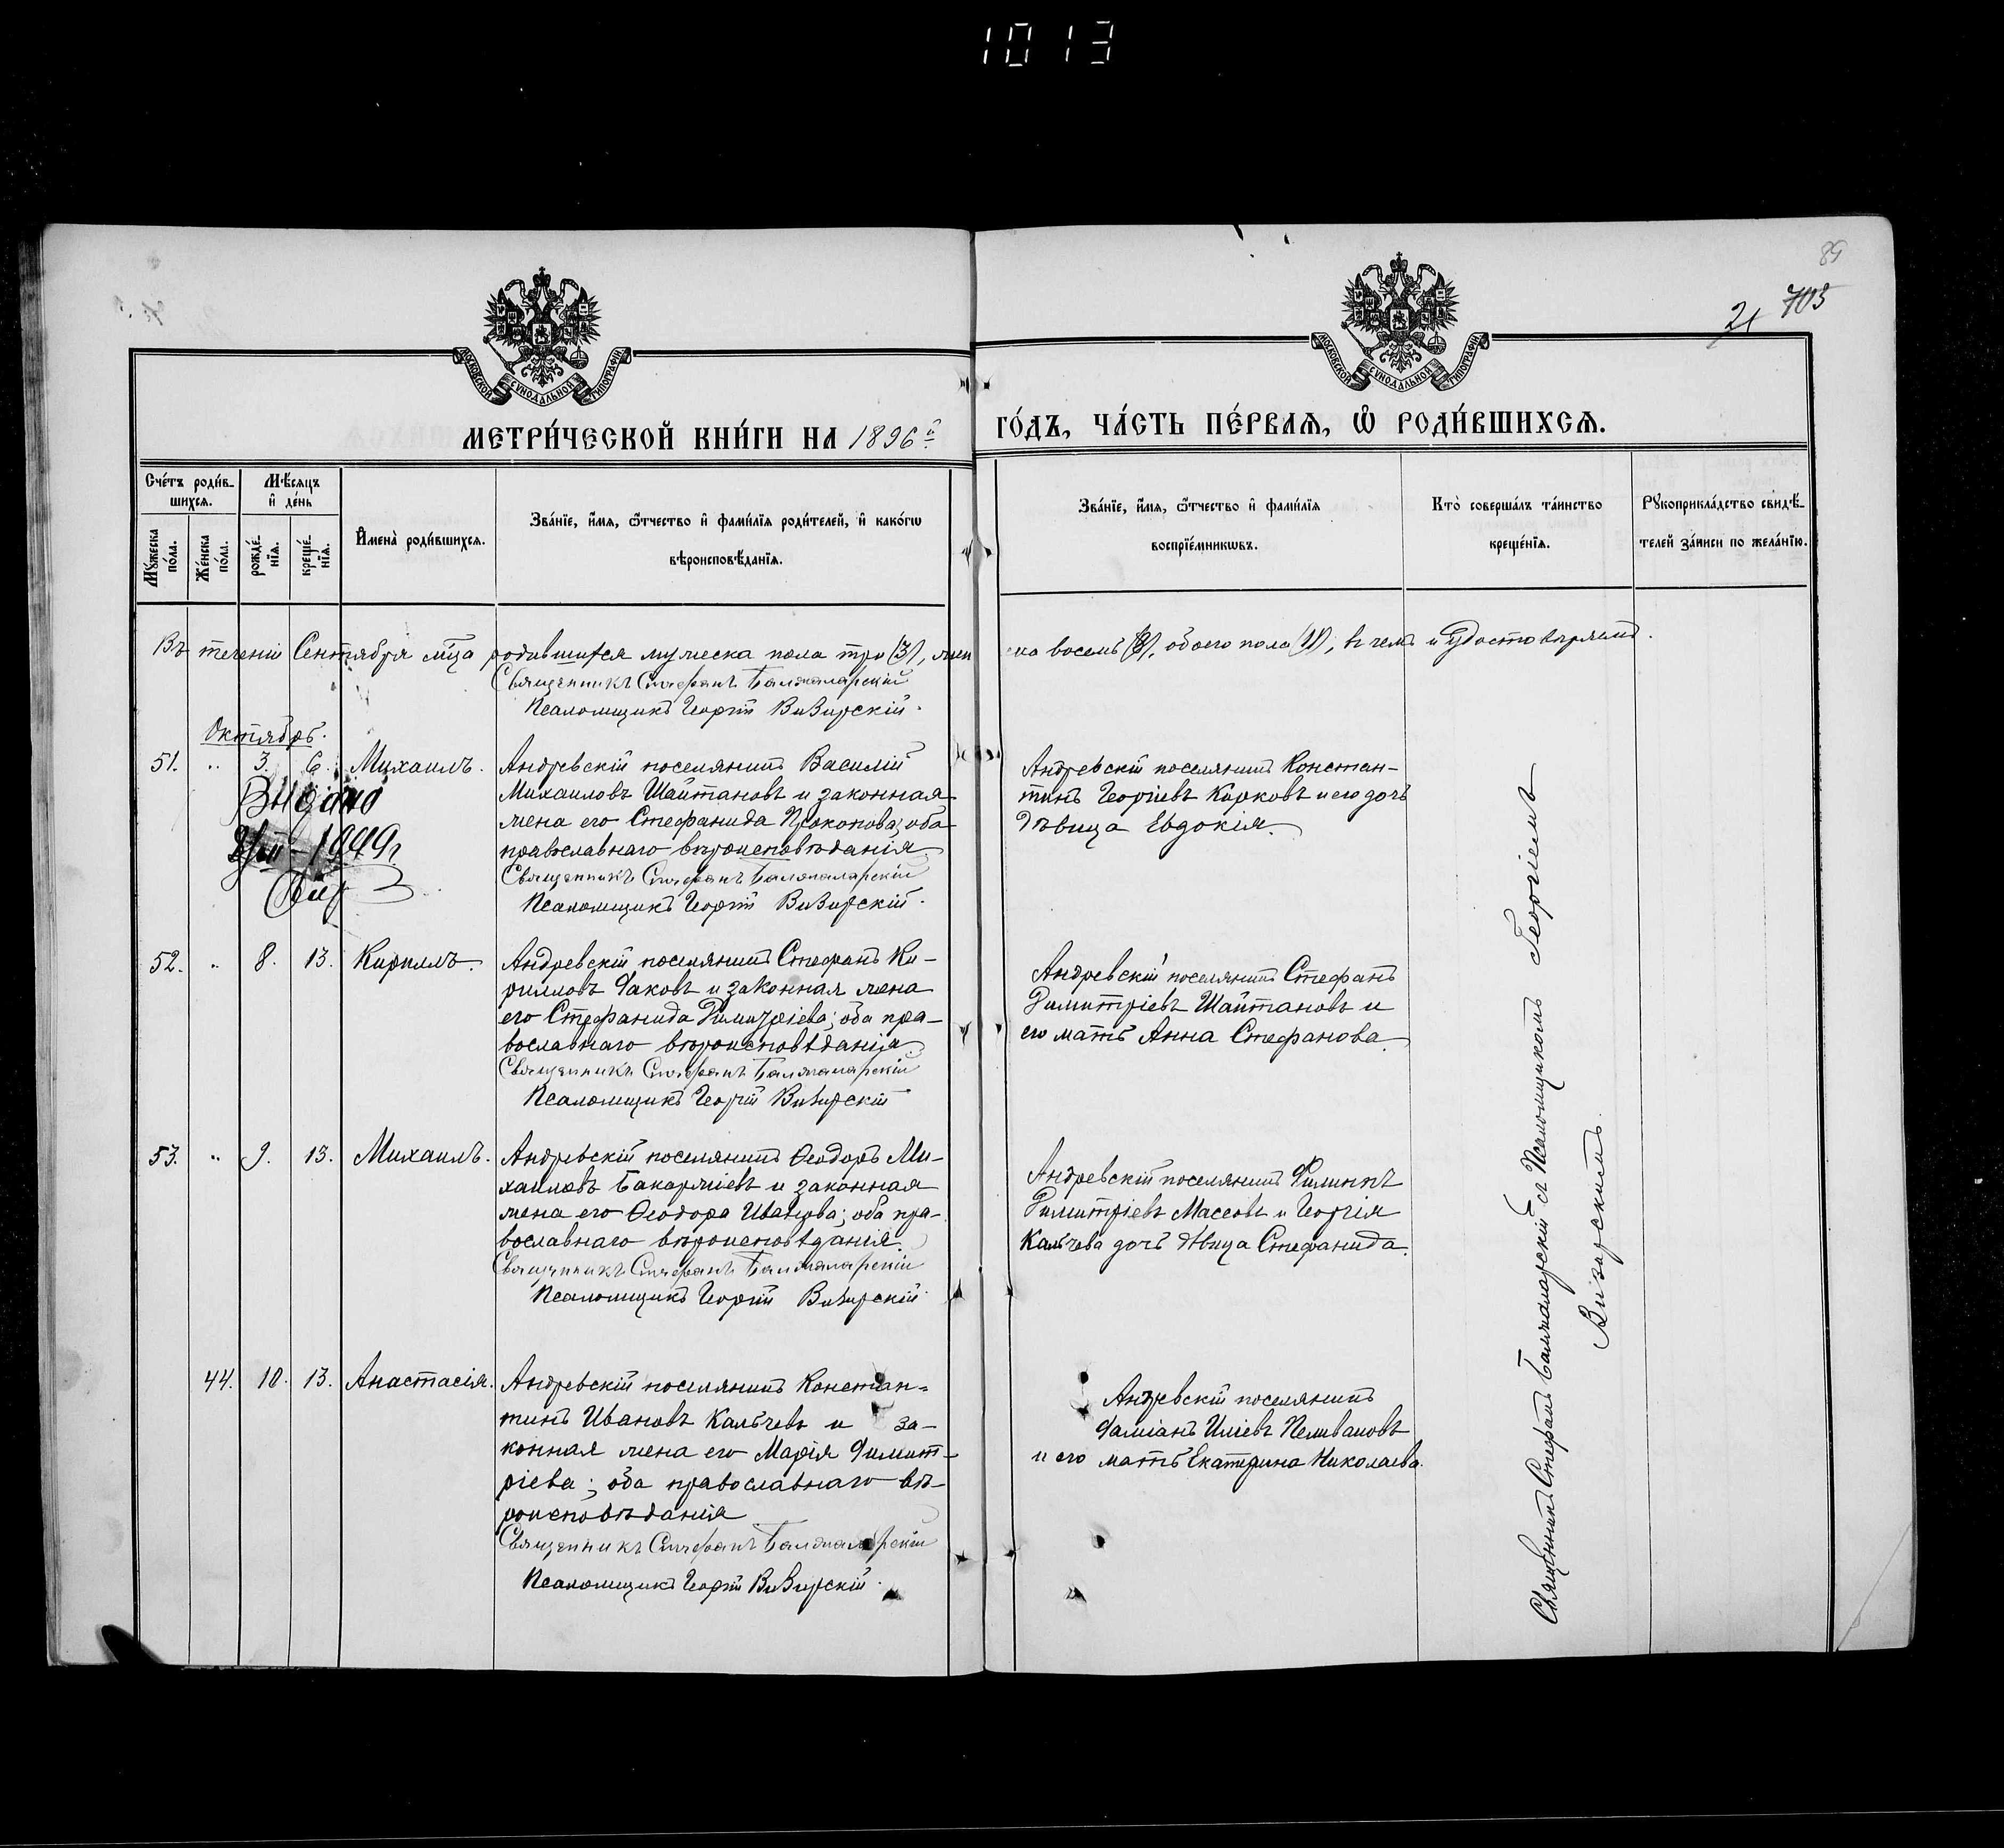 1013
89
21 703
МОСКОВСКОЙ СУНОДАЛЬНОЙ ТИПОГРАФІИ
МОСКОВСКОЙ СУНОДАЛЬНОЙ ТИПОГРАФІИ
МЕТРИ́ЧЕСКОЙ КНИ́ГИ НА 1896й
ГО́ДЪ, ЧА́СТЬ ПЕ́РВАѦ, Ѡ РОДИ́ВШИХСѦ.
Сче́тъ роди́в-
шихсѧ.
Мѣ́сѧцъ
и҆ де́нь
Мꙋ́жеска по́ла.
Же́нска по́ла.
рожде́-
нїѧ.
креще́-
нїѧ.
И҆мена̀ роди́вшихсѧ.
Зва́нїе, и҆́мѧ, ѻ҆́тчество и҆ фами́лїѧ роди́телей, и҆ како́гѡ
вѣроисповѣ́данїѧ.
Зва́нїе, и҆́мѧ, ѻ҆́тчество и҆ фами́лїѧ
воспрїе́мникѡвъ.
Кто̀ соверша́лъ та́инство
креще́нїѧ.
Рꙋкоприкла́дство свидѣ́-
телей за́писи по жела́нїю.
Въ теченіи Сентября мца родившихся мужеска пола три (3), жен
ска восемь (8), обоего пола (11), въ чемъ и удостовѣряемъ.
Священникъ Стефанъ Балжаларскій
Псаломщикъ Георгій Визирскій.
Октябрь.
51. " 3. 6. Михаилъ.
Андревскій поселянинъ Василій
Михаиловъ Шайтановъ и законная
жена его Стефанида Прокопова; оба
православнаго вѣроисповѣданія
Священникъ Стефанъ Балжаларскій
Псаломщикъ Георгій Визирскій.
Выдано
1949г
Андревскій поселянинъ Констан-
тинъ Георгіевъ Кирковъ и его дочь
дѣвица Евдокія.
52. " 8. 13. Кириллъ.
Андревскій поселянинъ Стефанъ Ки-
рилловъ Даковъ и законная жена
его Стефанида Димитріева; оба пра-
вославнаго вѣроисповѣданія
Священникъ Стефанъ Балжаларскій
Псаломщикъ Георгій Визирскій
Андревскій поселянинъ Стефанъ
Димитріевъ Шайтановъ и
его мать Анна Стефанова.
53. " 9. 13. Михаилъ.
Андревскій поселянинъ Ѳеодоръ Ми-
хаиловъ Бакаржіевъ и законная
жена его Ѳеодора Иванова; оба пра-
вославнаго вѣроисповѣданія.
Священникъ Стефанъ Балжаларскій
Псаломщикъ Георгій Визирскій
Андревскій поселянинъ Филиппъ
Димитріевъ Массовъ и Георгія
Кальчева дочь дѣвица Стефанида.
44. 10. 13. Анастасія.
Андревскій поселянинъ Констан-
тинъ Ивановъ Кальчевъ и за-
конная жена его Марія Димит-
ріева; оба православнаго вѣ-
роисповѣданія
Священникъ Стефанъ Балжаларскій
Псаломщикъ Георгій Визирскій.
Андревскій поселянинъ
Даміанъ Иліевъ Пеливановъ
и его мать Екатерина Николаева.
Священникъ Стефанъ Балжаларскій съ Псаломщикомъ Георгіемъ
Визирскимъ.